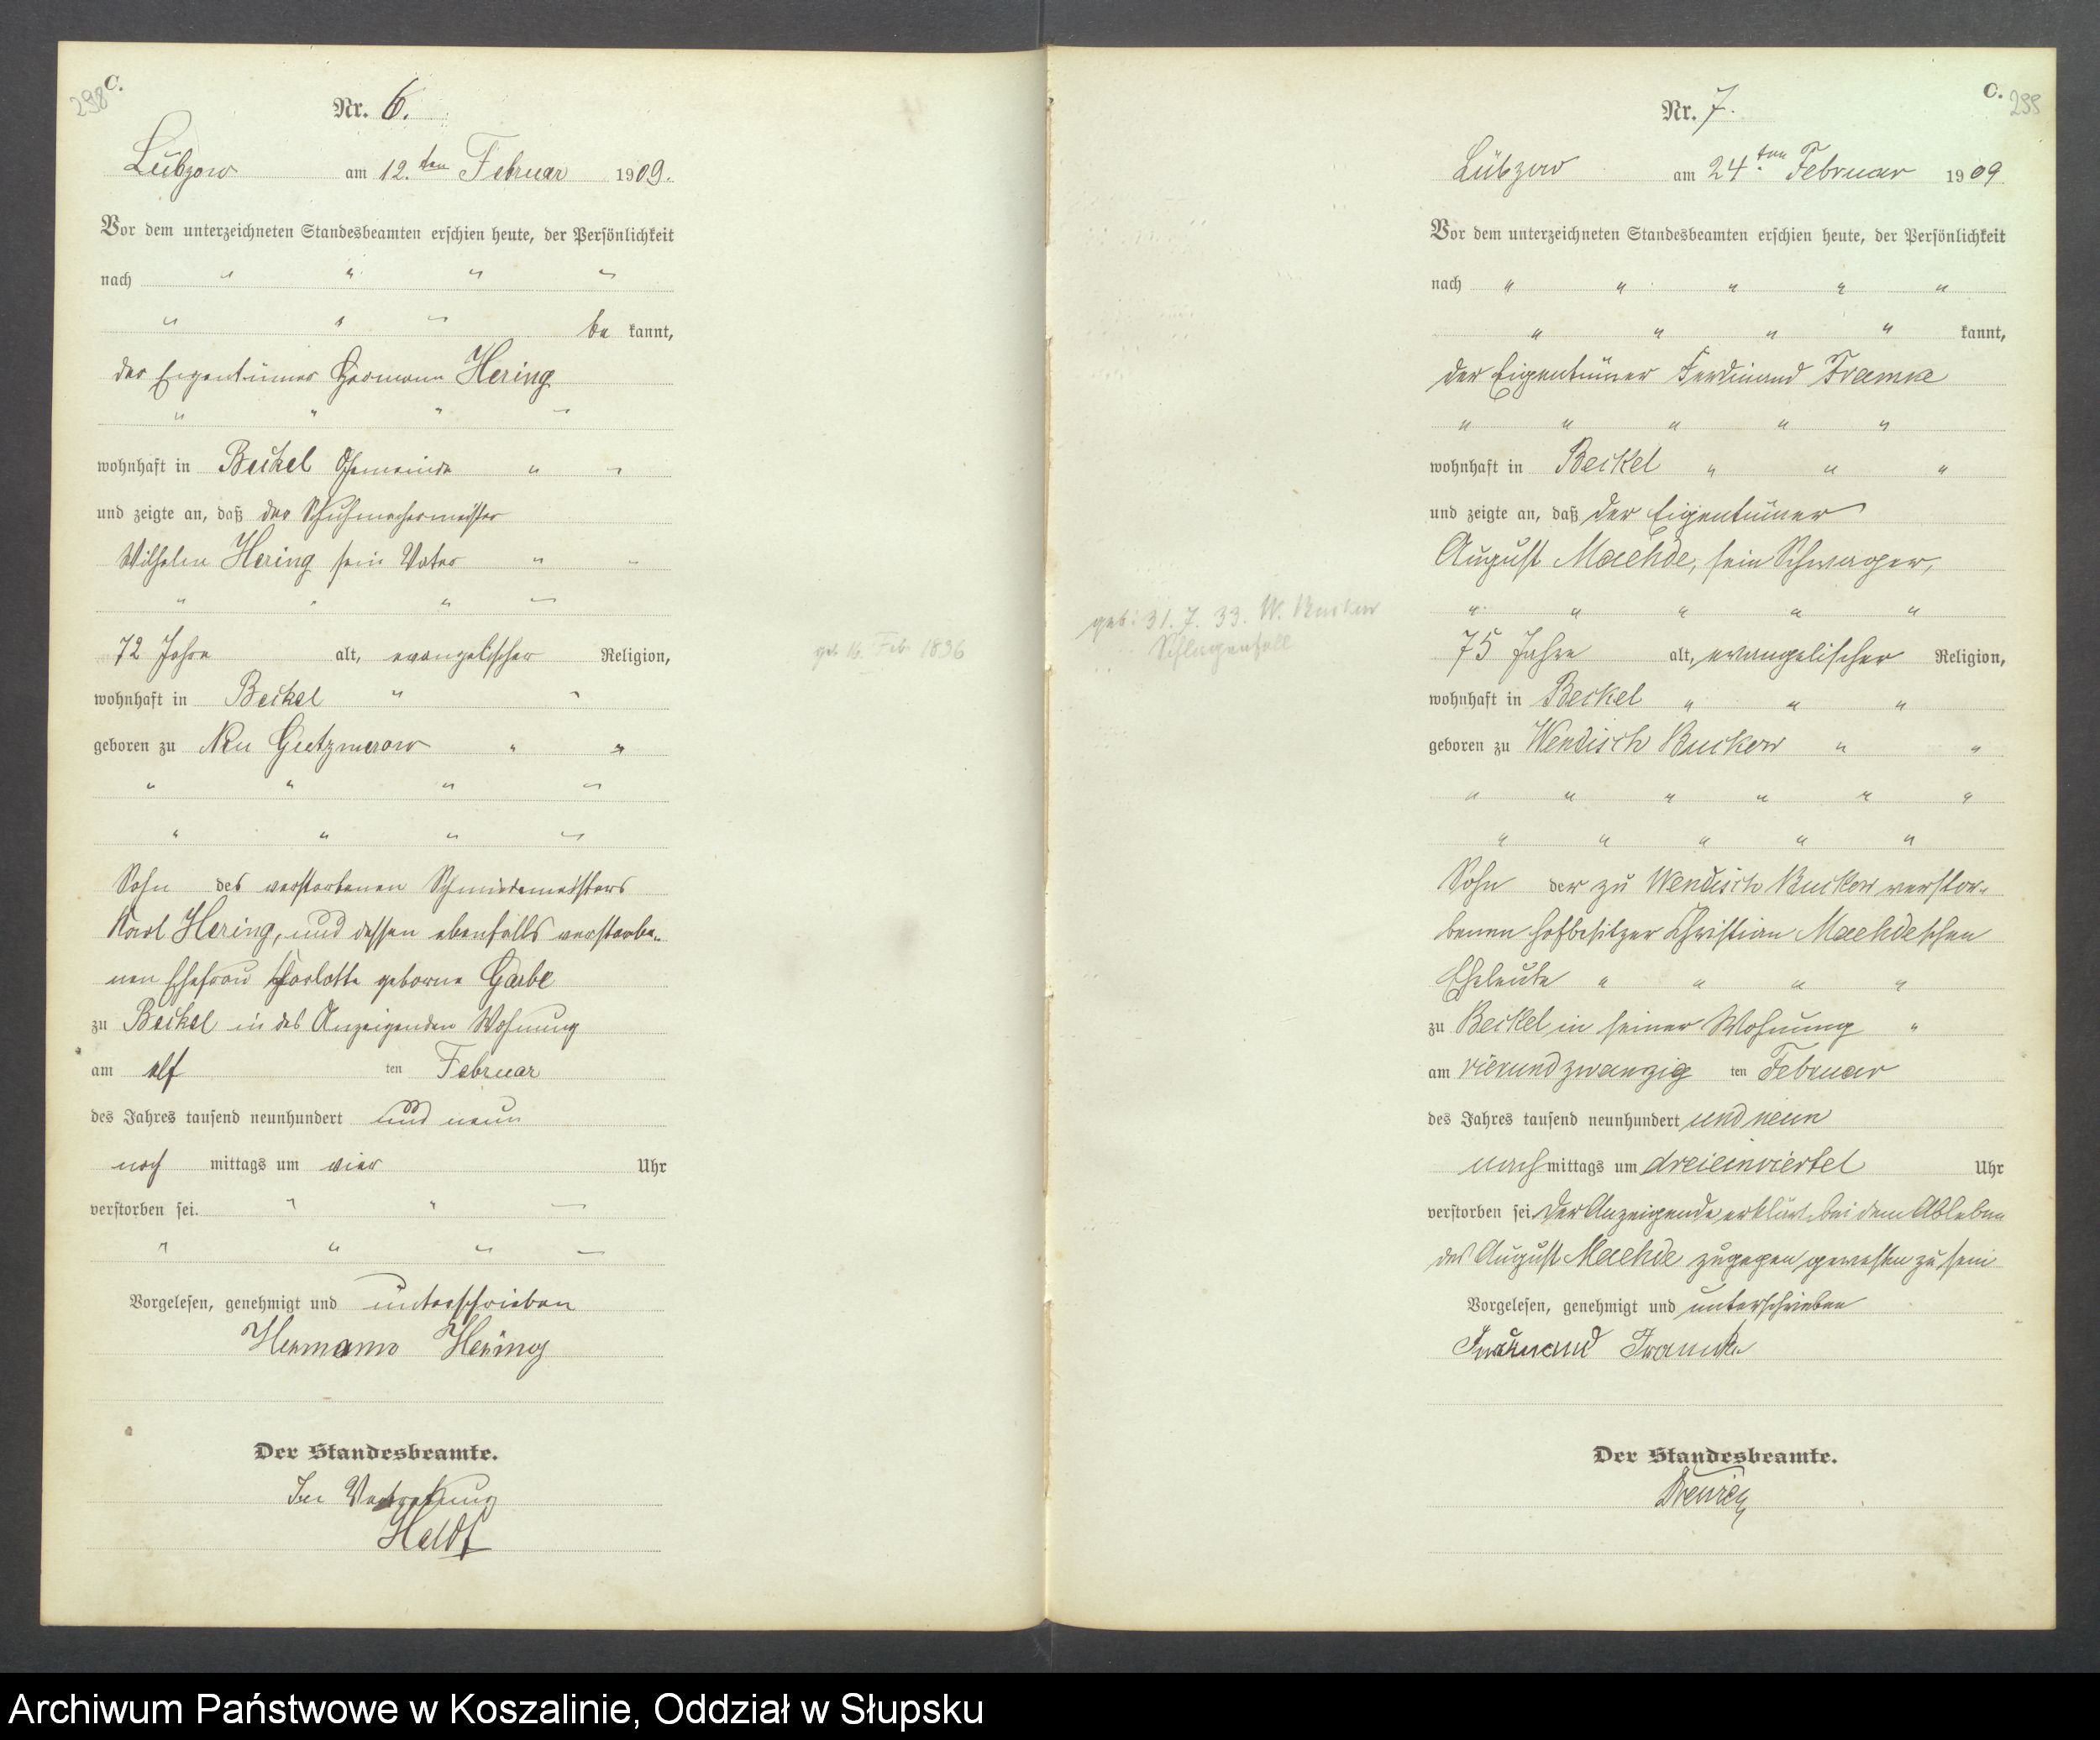 298
C.
Nr. 6.
Lübzow am 12.ten Februar 1909.
Vor dem unterzeichneten Standesbeamten erschien heute, der Persönlichkeit
nach " " " "
" " " be kannt,
der Eigentümer Hermann Hering
" " " "
wohnhaft in Beckel Gemeinde " "
und zeigte an, daß der Schuhmachermeister
Wilhelm Hering sein Vater " "
" " " "
72 Jahre alt, evangelischer Religion,
geb. 16. Feb. 1836
wohnhaft in Beckel " "
geboren zu Neu Gutzmerow " "
" " " "
" " " "
Sohn des verstorbenen Schmiedemeisters
Karl Hering, und dessen ebenfalls verstorbe-
nen Ehefrau Charlotte geborne Garbe
zu Beckel in des Anzeigenden Wohnung
am elf ten Februar
des Jahres tausend neunhundert und neun
nach mittags um vier Uhr
verstorben sei. " " "
" " " "
Vorgelesen, genehmigt und unterschrieben
Hermann Hering
Der Standesbeamte.
In Vertretung
Heldt
C.
299
Nr. 7.
Lübzow am 24.ten Februar 1909
Vor dem unterzeichneten Standesbeamten erschien heute, der Persönlichkeit
nach " " " " "
" " " " kannt,
der Eigentümer Ferdinand Framke
" " " " "
wohnhaft in Beckel " " "
und zeigte an, daß der Eigentümer
August Maehde, sein Schwager,
" " " " "
geb: 31. 7. 33. W. Buckow
75 Jahre alt, evangelischer Religion,
wohnhaft in Beckel " " "
geboren zu Wendisch Buckow " "
" " " " " "
" " " " "
Sohn der zu Wendisch Buckow verstor-
benen Hofbesitzer Christian Maehdeschen
Eheleute " " " "
zu Beckel in seiner Wohnung "
am vierundzwanzig ten Februar
des Jahres tausend neunhundert und neun
nach mittags um dreieinviertel Uhr
verstorben sei. Der Anzeigende erklärt, bei dem Ableben
des August Maehde zugegen gewesen zu sein
Vorgelesen, genehmigt und unterschrieben
Ferdinand Framke
Der Standesbeamte.
Archiwum Państwowe w Koszalinie, Oddział w Słupsku